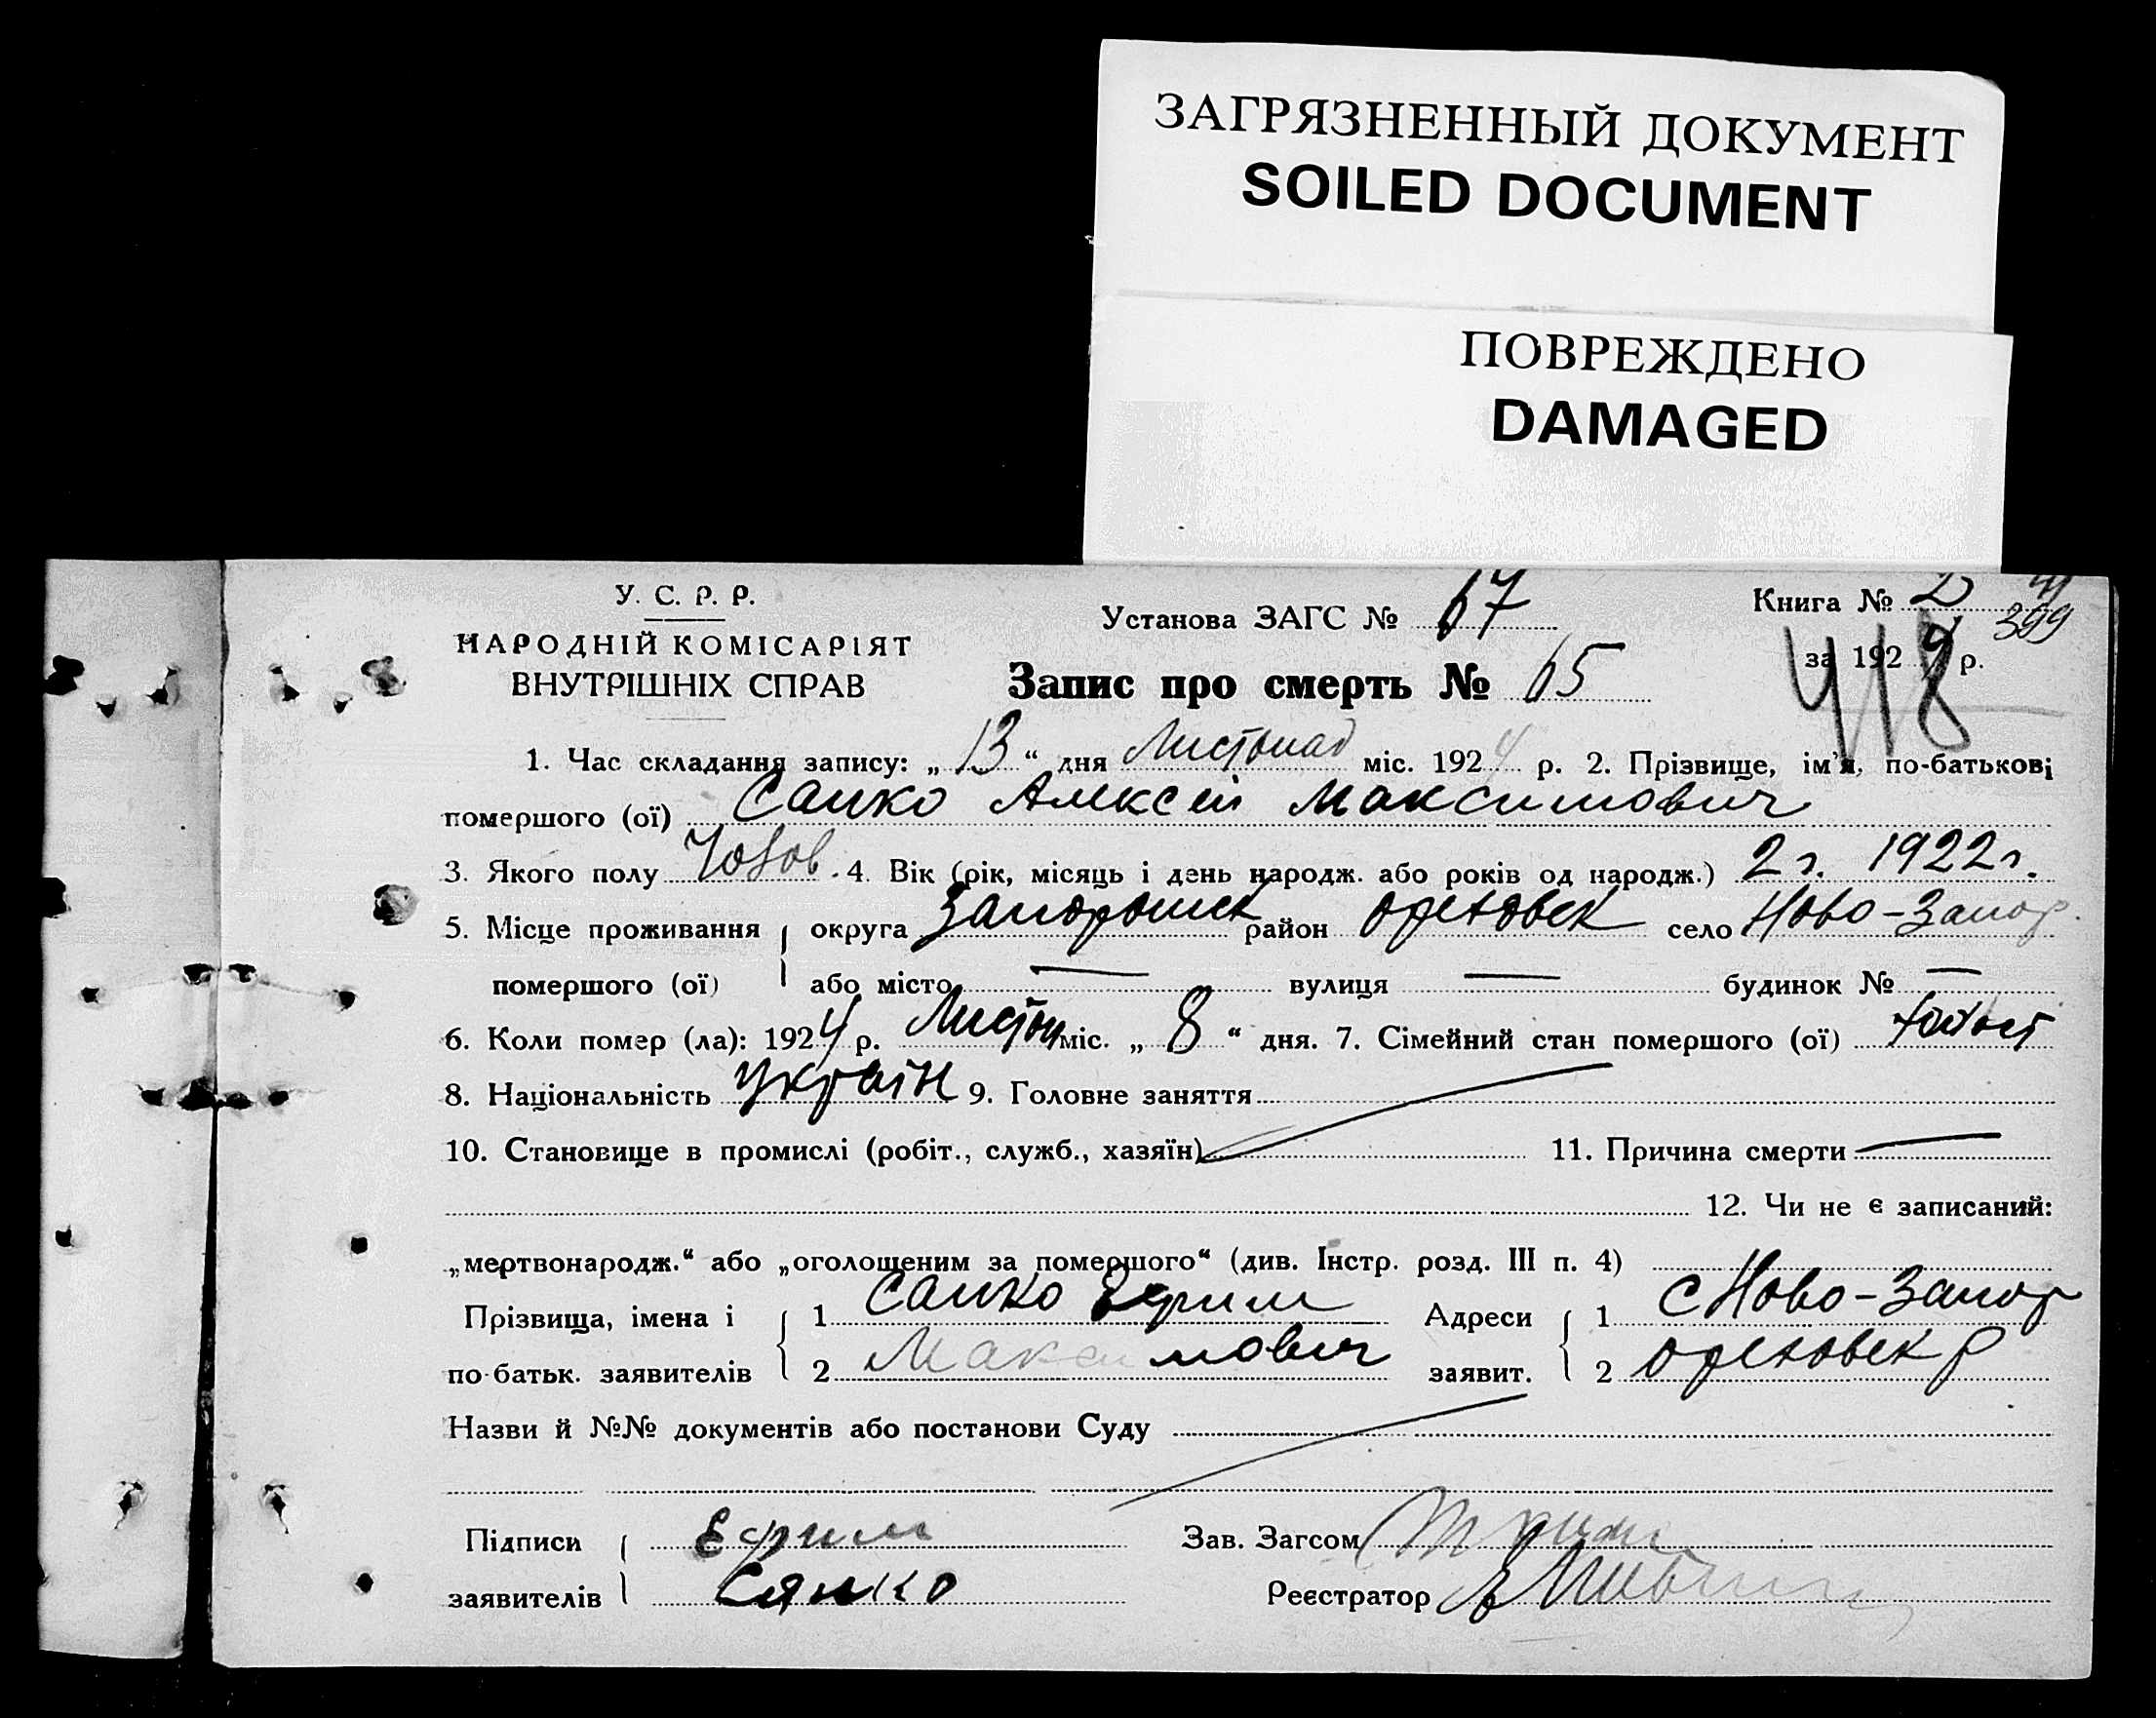 ЗАГРЯЗНЕННЫЙ ДОКУМЕНТ
SOILED DOCUMENT
ПОВРЕЖДЕНО
DAMAGED
У. С. Р. Р.
НАРОДНІЙ КОМІСАРІЯТ
ВНУТРІШНІХ СПРАВ
Установа ЗАГС № 67
Книга № 2
399
за 1924 р.
418
Запис про смерть № 65
1. Час складання запису: „13“ дня Листопад міс. 1924 р. 2. Прізвище, ім'я, по-батькові
помершого (ої) Санко Алексей Максимович
3. Якого полу Чолов. 4. Вік (рік, місяць і день народж. або років од народж.) 2 г. 1922 г.
5. Місце проживання округа Запорожск район Ореховск село Ново-Запор.
помершого (ої) або місто — вулиця — будинок № —
6. Коли помер (ла): 1924 р. Листоп міс. „8“ дня. 7. Сімейний стан помершого (ої)
8. Національність Україн 9. Головне заняття
10. Становище в промислі (робіт., служб., хазяїн) 11. Причина смерти —
12. Чи не є записаний:
„мертвонародж.“ або „оголошеним за помершого“ (див. Інстр. розд. III п. 4)
Прізвища, імена і 1 Санко Ефрим Адреси 1 с Ново-Запор
по-батьк. заявителів 2 Максимович заявит. 2 Ореховск р
Назви й №№ документів або постанови Суду
Підписи Ефрим Зав. Загсом
заявителів Санко Реєстратор